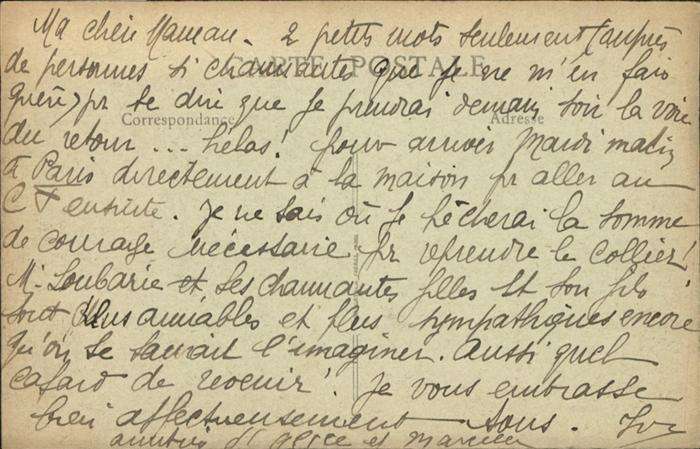 Ma chère Maman. 2 petits mots seulement (auprès
CARTE POSTALE
de personnes si charmantes que je ne m'en fais
guère) pr te dire que je prendrai demain soir la voie
Correspondance
Adresse
du retour ... hélas! pour arriver Mardi matin
à Paris directement à la maison pr aller au
ensuite. Je ne sais où je pêcherai la somme
de courage nécessaire pr reprendre le collier!
Mr Loubarie et ses charmantes filles et son fils
sont plus aimables et plus sympathiques encore
qu'on se saurait l'imaginer. Aussi quel
cafard de revenir! Je vous embrasse
bien affectueusement tous.
et